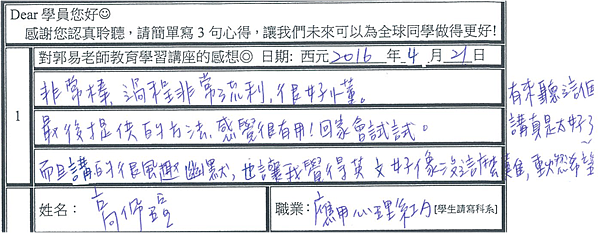 Dear 學員您好☺
感謝您認真聆聽，請簡單寫 3 句心得，讓我們未來可以為全球同學做得更好!
對郭易老師教育學習講座的感想◎ 日期: 西元 2016 年 4 月 21 日
1
非常棒，過程非常流利，很好懂。
最後提供的方法，感覺很有用！回家會試試。
而且講的很風趣幽默，也讓我覺得英文好像沒這麼難，
有來聽這個
講真是太好了
姓名：高
職業：應用心理系 [學生請寫科系]